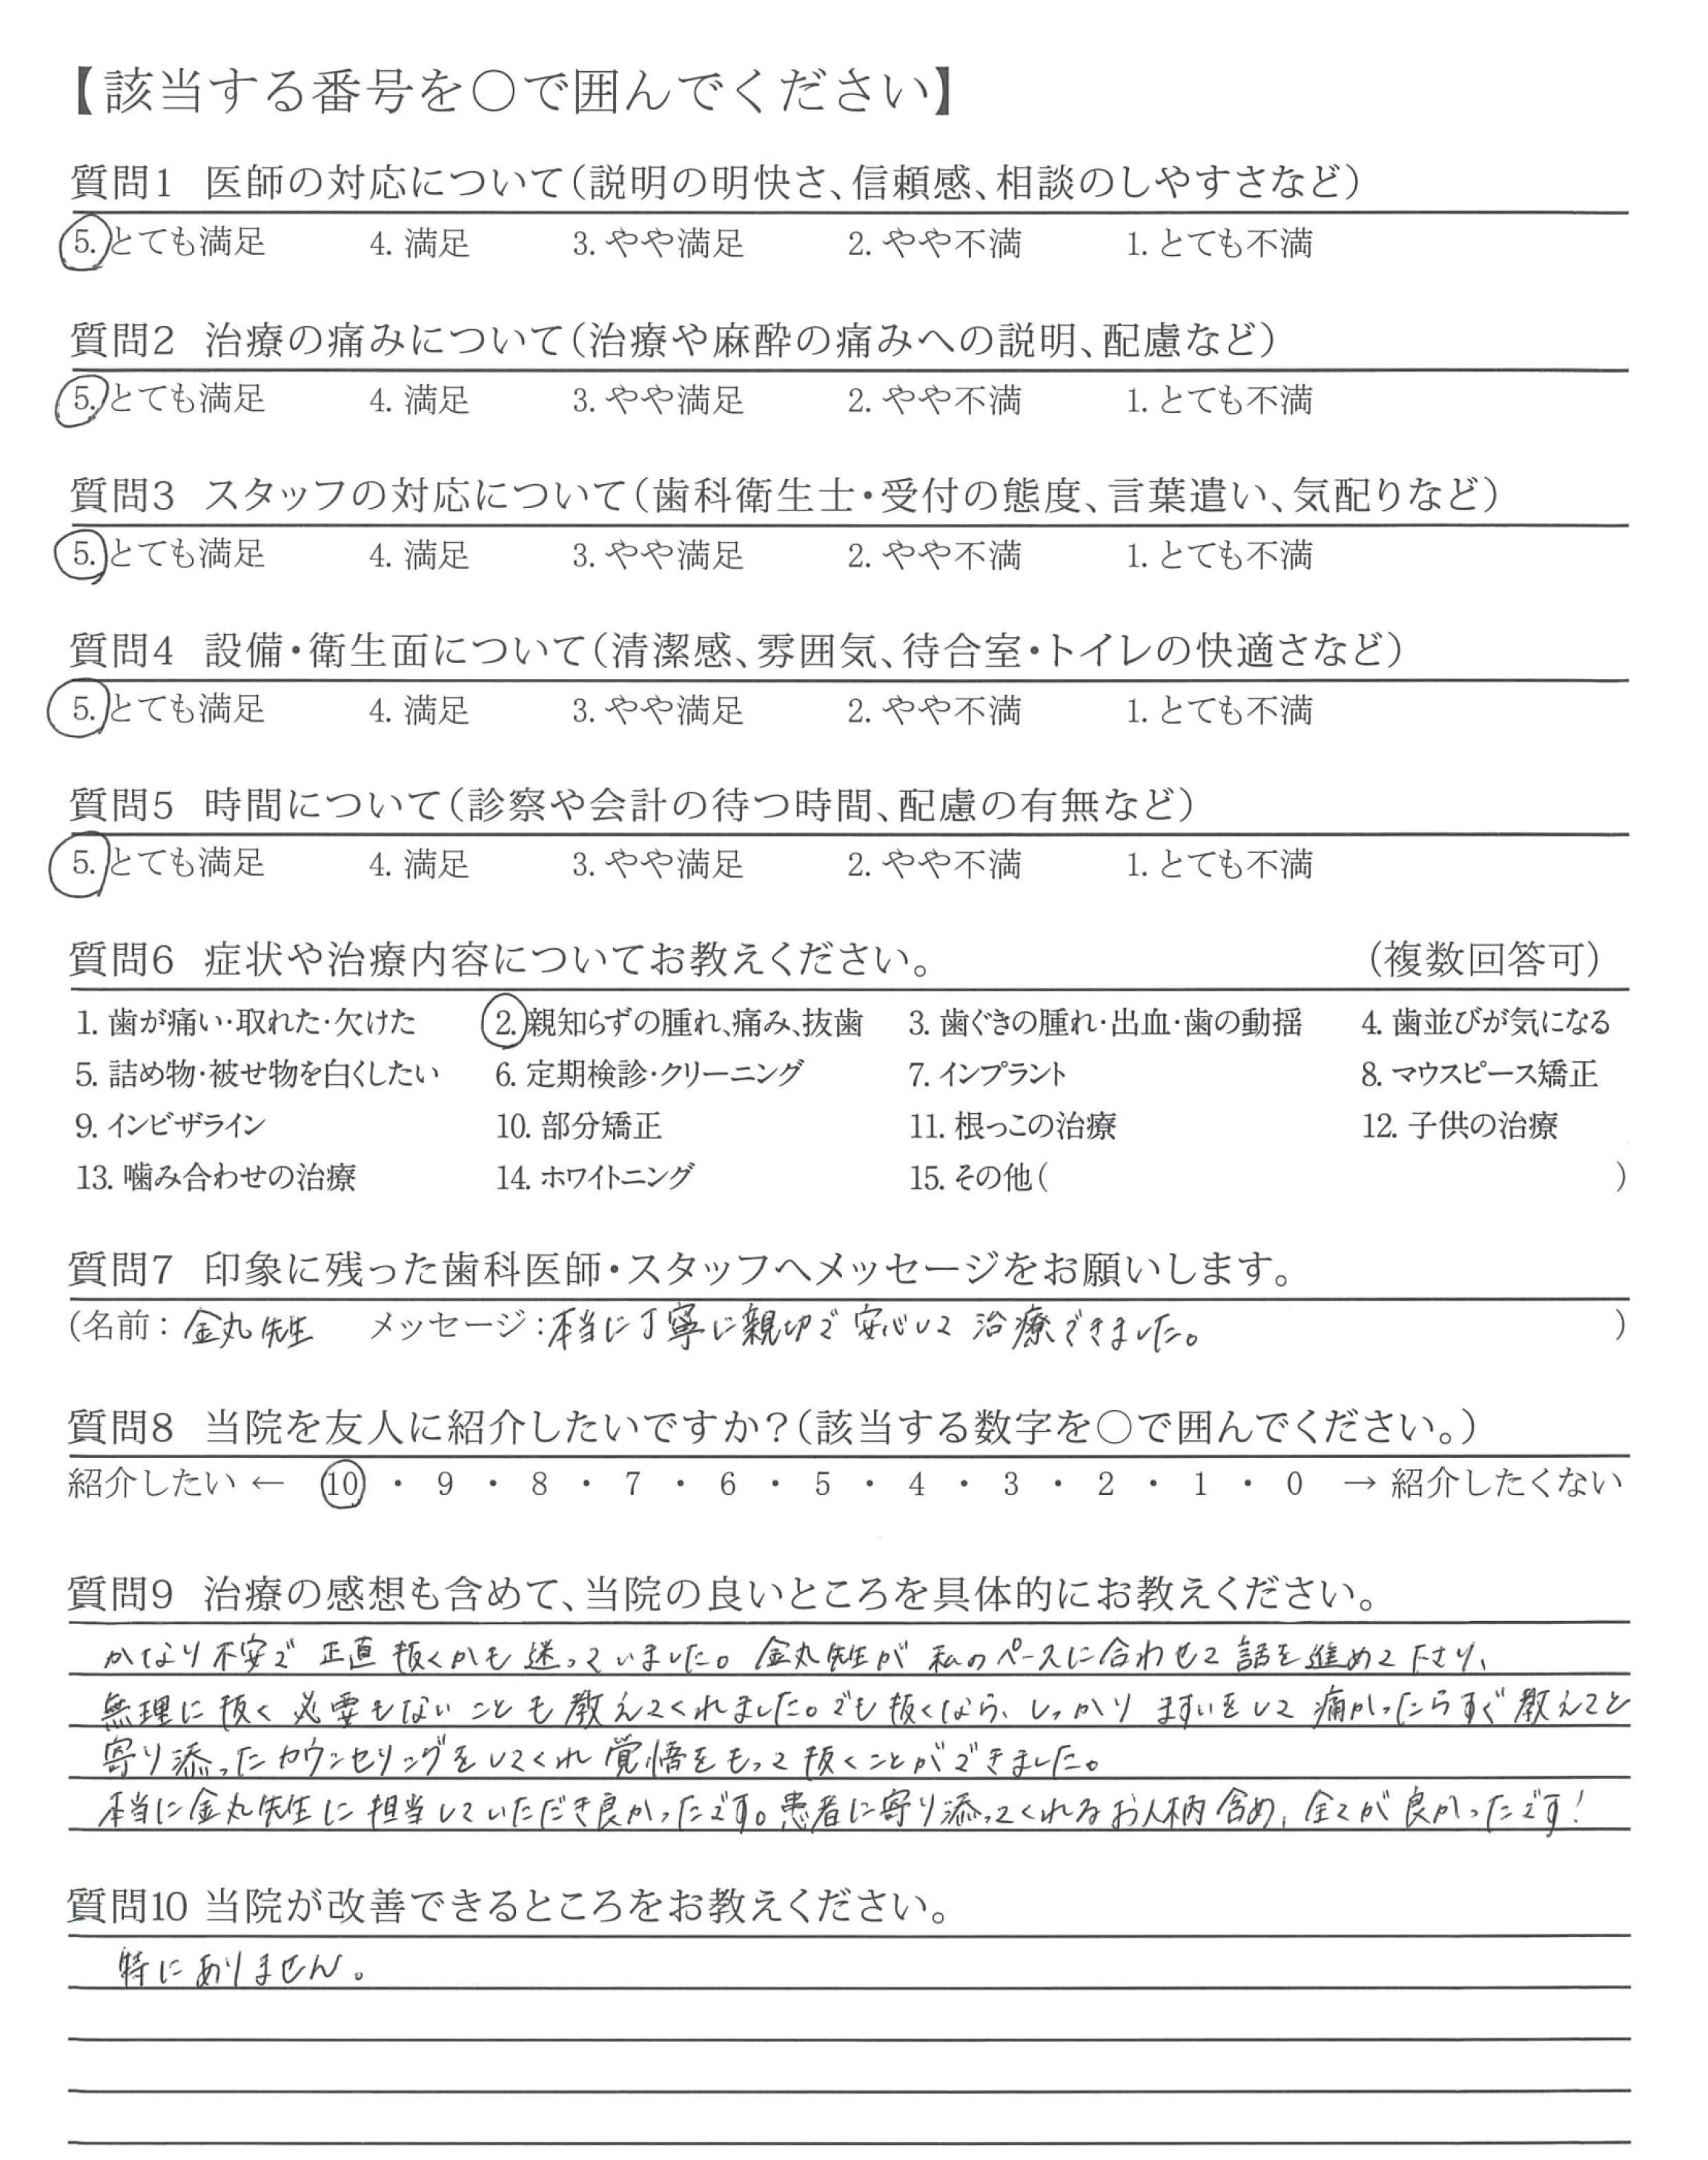 【該当する番号を〇で囲んでください】
質問1 医師の対応について（説明の明快さ、信頼感、相談のしやすさなど）
5. とても満足 4. 満足 3. やや満足 2. やや不満 1. とても不満
質問2 治療の痛みについて（治療や麻酔の痛みへの説明、配慮など）
5. とても満足 4. 満足 3. やや満足 2. やや不満 1. とても不満
質問3 スタッフの対応について（歯科衛生士・受付の態度、言葉遣い、気配りなど）
5. とても満足 4. 満足 3. やや満足 2. やや不満 1. とても不満
質問4 設備・衛生面について（清潔感、雰囲気、待合室・トイレの快適さなど）
5. とても満足 4. 満足 3. やや満足 2. やや不満 1. とても不満
質問5 時間について（診察や会計の待つ時間、配慮の有無など）
5. とても満足 4. 満足 3. やや満足 2. やや不満 1. とても不満
質問6 症状や治療内容についてお教えください。 （複数回答可）
1. 歯が痛い・取れた・欠けた 2. 親知らずの腫れ、痛み、抜歯 3. 歯ぐきの腫れ・出血・歯の動揺 4. 歯並びが気になる
5. 詰め物・被せ物を白くしたい 6. 定期検診・クリーニング 7. インプラント 8. マウスピース矯正
9. インビザライン 10. 部分矯正 11. 根っこの治療 12. 子供の治療
13. 噛み合わせの治療 14. ホワイトニング 15. その他（ ）
質問7 印象に残った歯科医師・スタッフへメッセージをお願いします。
（名前：金丸先生 メッセージ：本当に丁寧に親切で安心して治療できました。 ）
質問8 当院を友人に紹介したいですか？（該当する数字を〇で囲んでください。）
紹介したい ← 10 ・ 9 ・ 8 ・ 7 ・ 6 ・ 5 ・ 4 ・ 3 ・ 2 ・ 1 ・ 0 → 紹介したくない
質問9 治療の感想も含めて、当院の良いところを具体的にお教えください。
かなり不安で正直抜くかも迷っていました。金丸先生が私のペースに合わせて話を進めて下さり、
無理に抜く必要もないことも教えてくれました。でも抜くなら、しっかりますいをして痛かったらすぐ教えてと
寄り添ったカウンセリングをしてくれ覚悟をもって抜くことができました。
本当に金丸先生に担当していただき良かったです。患者に寄り添ってくれるお人柄含め、全てが良かったです！
質問10 当院が改善できるところをお教えください。
特にありません。